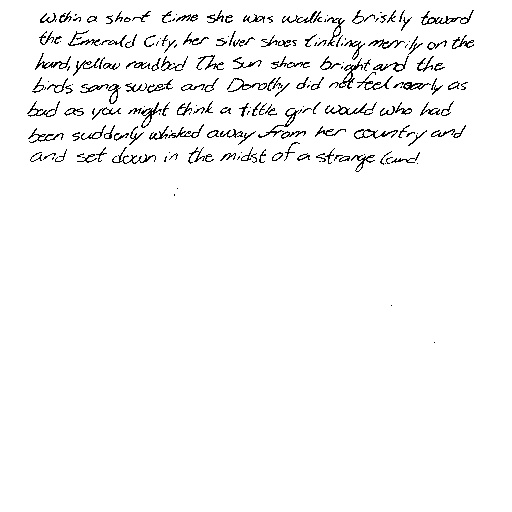 Within a short time she was walking briskly toward
the Emerald City, her silver shoes tinkling merrily on the
hard, yellow roadbed The Sun shone bright and the
birds sang sweet and Dorothy did not feel nearly as
bad as you might think a little girl would who had
been suddenly whisked away from her country and
and set down in the midst of a strange land.